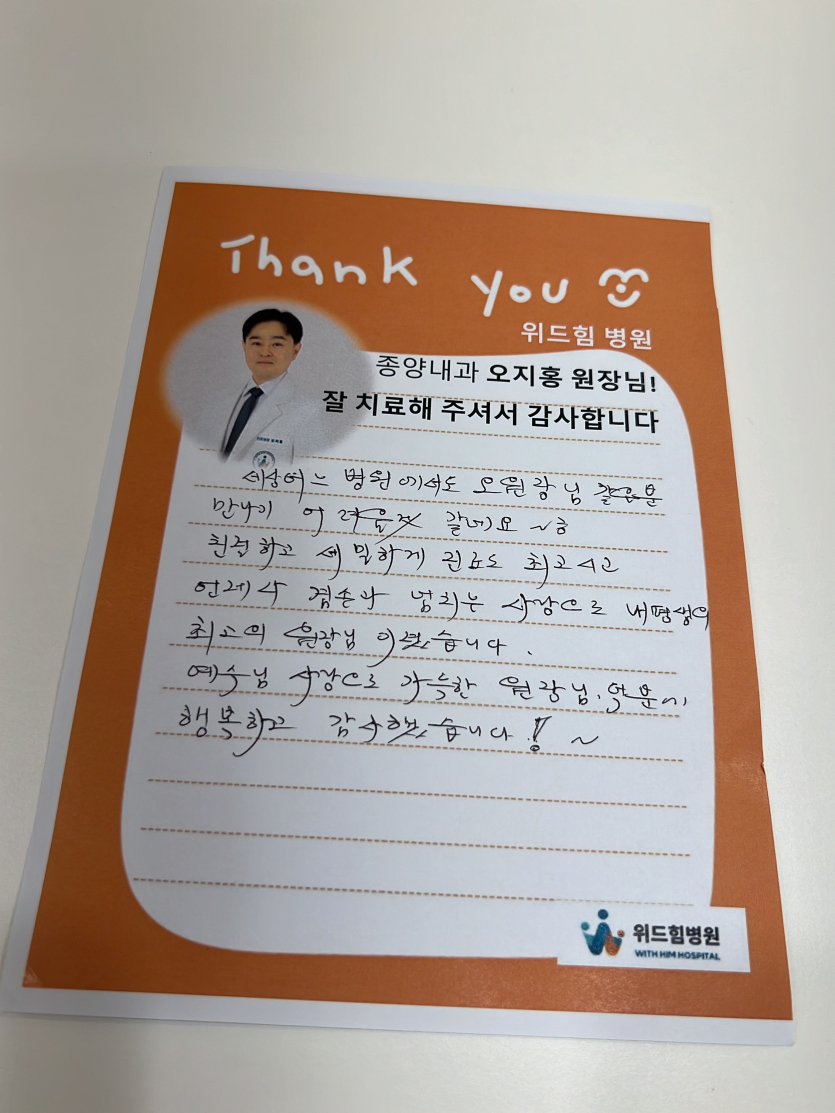 Thank you
위드힘 병원
종양내과 오지홍 원장님!
잘 치료해 주셔서 감사합니다
세상어느 병원에서도 오원장님 같은분
만나기 어려울것 같네요~^^
친절하고 세밀하게 진료도 최고시고
언제나 겸손과 넘치는 사랑으로 내평생의
최고의 원장님 이셨습니다.
예수님 사랑으로 가득한 원장님, 덕분에
행복하고 감사했습니다!~
위드힘병원
WITH HIM HOSPITAL